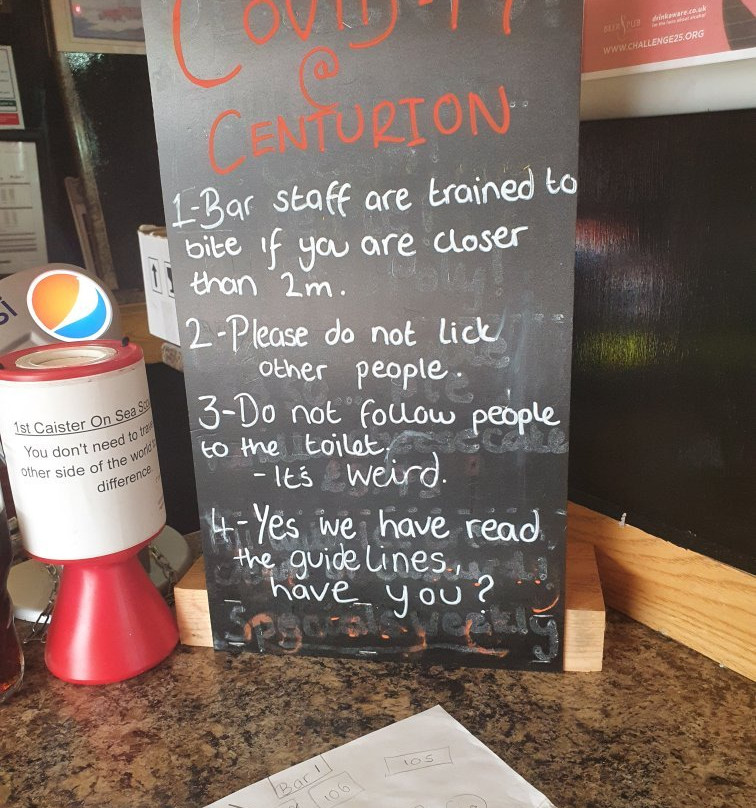 COVID-19
@
CENTURION
1-Bar staff are trained to
bite if you are closer
than 2m.
2-Please do not lick
other people.
3-Do not follow people
to the toilet,
- It's weird.
4-Yes we have read
the guidelines,
have you?
Specials weekly
1st Caister On Sea
You don't need to
other side of the world
difference
si
drinkaware.co.uk
WWW.CHALLENGE25.ORG
Bar 1
106
105